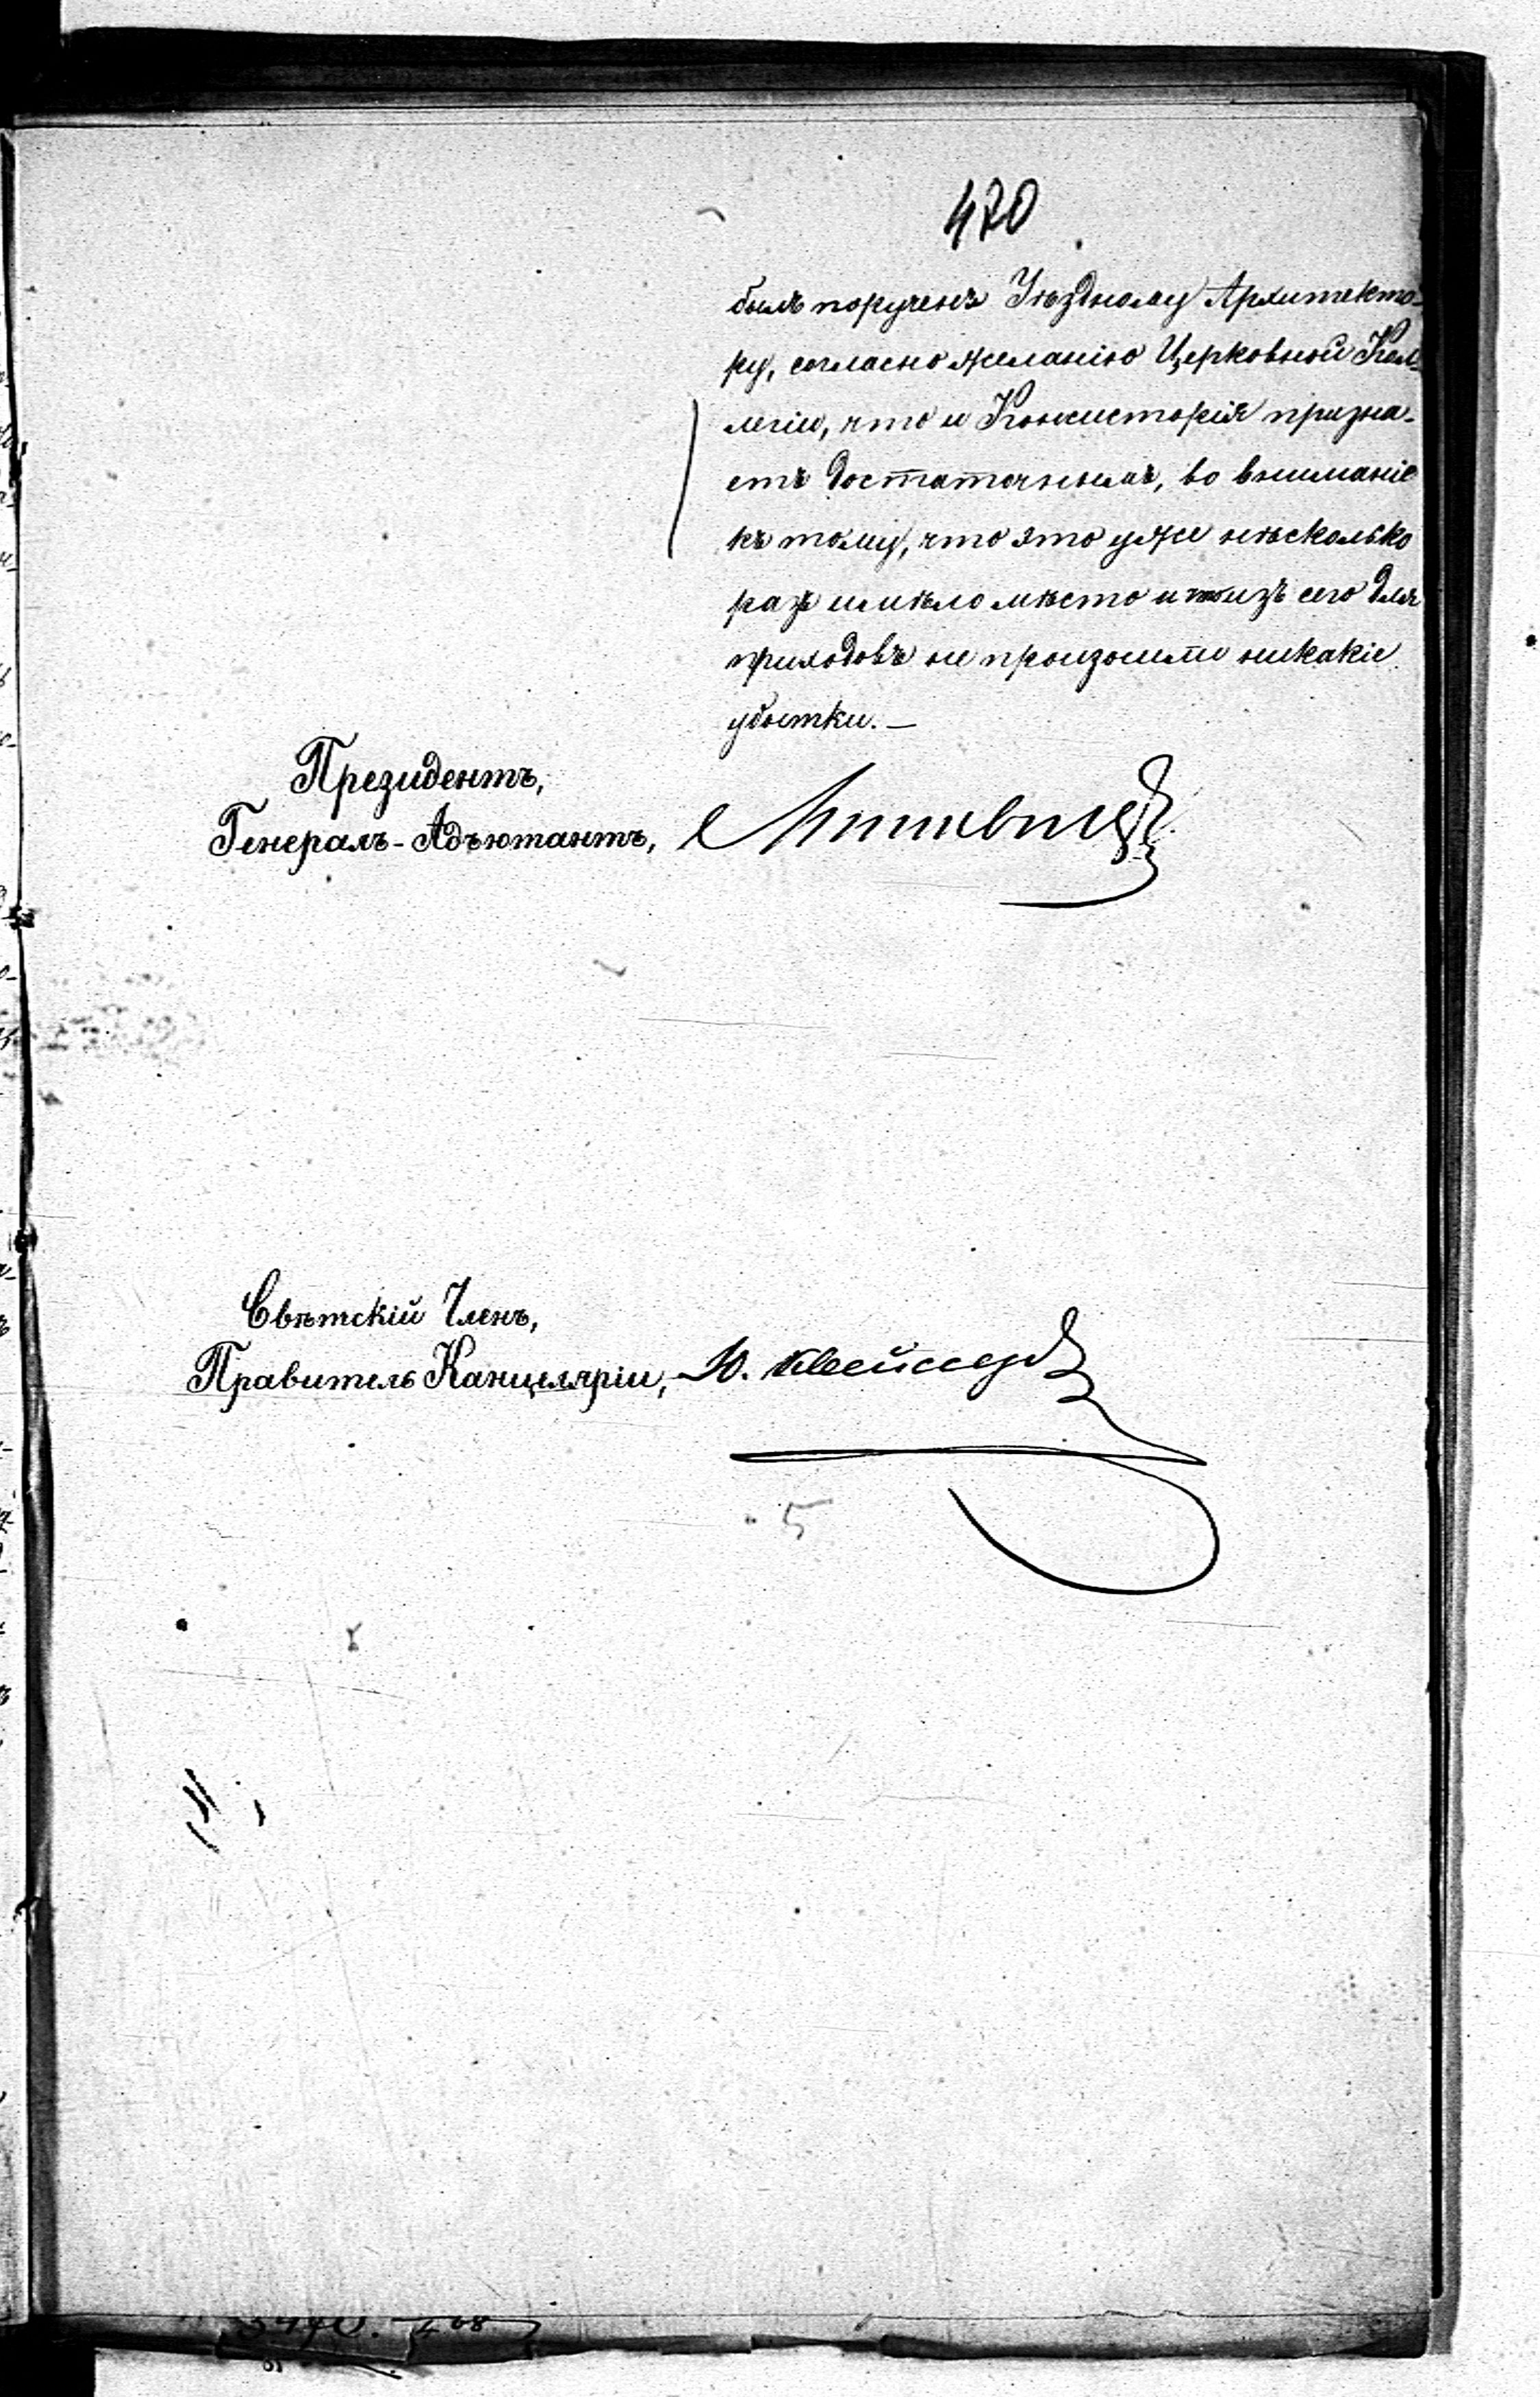 470
былъ порученъ Уѣздному Архитекто-
ру, согласно желанію Церковной Кол-
легіи, что и Консисторія призна-
етъ достаточнымъ, во вниманіе
къ тому, что это уже нѣсколько
разъ имѣло мѣсто и изъ сего для
приходовъ не произошли никакіе
убытки. —
Президентъ,
Генералъ-Адъютантъ,
Свѣтскій Членъ,
Правитель Канцеляріи, Ю.
5